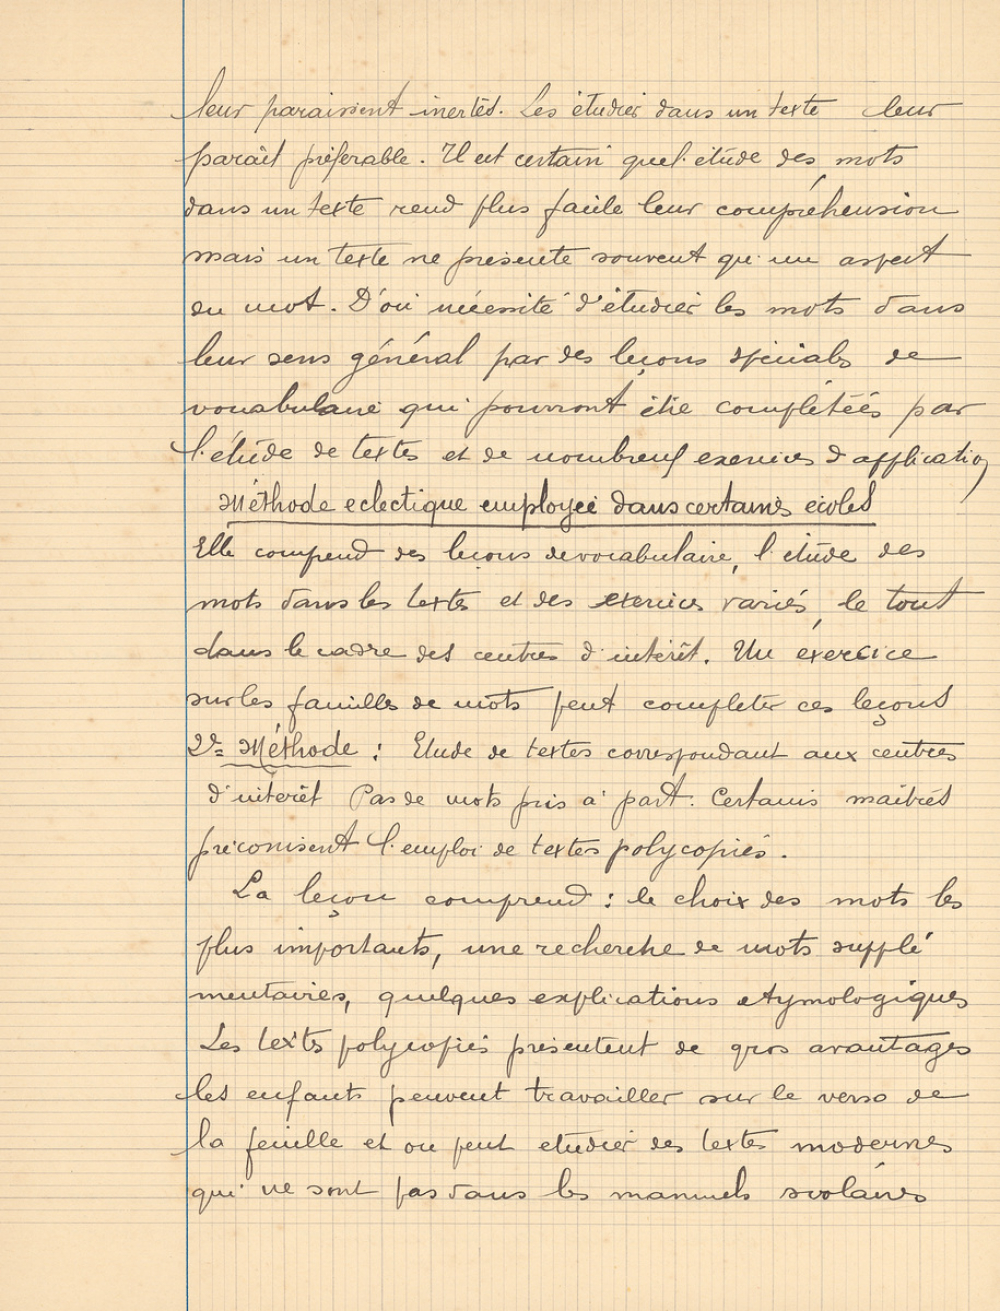 leur paraissent inertes. Les étudier dans un texte leur
parait préferable. Il est certain que l'étude des mots
dans un texte rend plus facile leur compréhension
mais un texte ne présente souvent qu'un aspect
du mot. D'où nécessité d'étudier les mots dans
leur sens général par des leçons spéciales de
vocabulaire qui pourront être complétées par
l'étude de textes et de nombreux exercices d'application
Méthode eclectique employée dans certaines écoles
Elle comprend des leçons de vocabulaire, l'étude des
mots dans les textes et des exercices variés, le tout
dans le cadre des centres d'intérêt. Un exercice
sur les familles de mots peut completer ces leçons
2e Méthode : Etude de textes correspondant aux centres
d'interêt Pas de mots pris à part. Certains maitres
préconisent l'emploi de textes polycopiés.
La leçon comprend : le choix des mots les
plus importants, une recherche de mots supplé
mentaires, quelques explications etymologiques
Les textes polycopiés présentent de gros avantages
les enfants peuvent travailler sur le verso de
la feuille et on peut etudier des textes modernes
qui ne sont pas dans les manuels scolaires